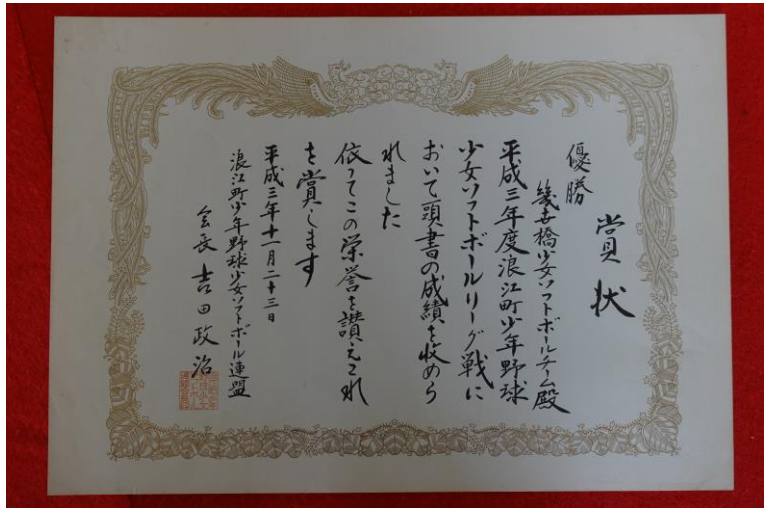 賞状
優勝
幾世橋少女ソフトボールチーム殿
平成三年度浪江町少年野球
少女ソフトボールリーグ戦に
おいて頭書の成績を收めら
れました
依ってこの栄誉を讃えこれ
を賞します
平成三年十一月二十三日
浪江町少年野球少女ソフトボール連盟
会長 吉田政治